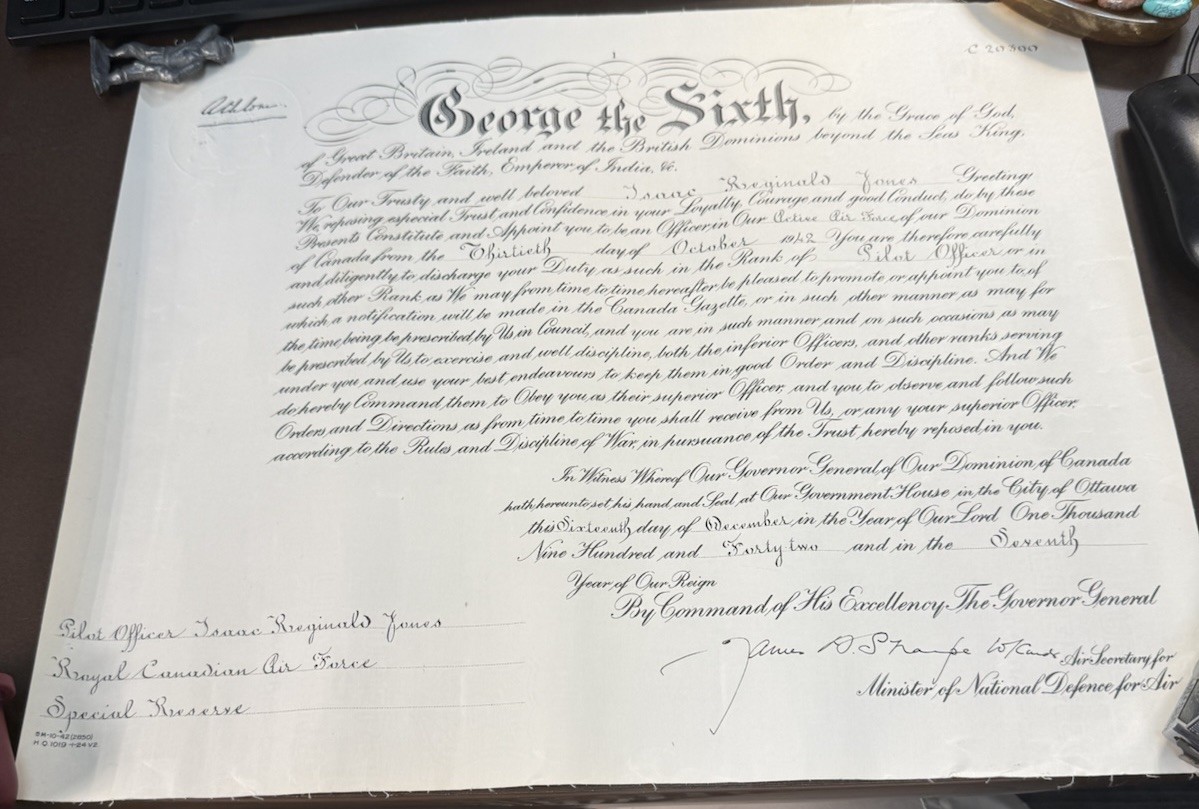 C 20300
Athlone.
George the Sixth, by the Grace of God,
of Great Britain, Ireland and the British Dominions beyond the Seas King,
Defender of the Faith, Emperor of India, &c.
To Our Trusty and well beloved Isaac Reginald Jones Greeting:
We, reposing especial Trust and Confidence in your Loyalty, Courage and good Conduct, do by these
Presents Constitute and Appoint you to be an Officer in Our Active Air Force of our Dominion
of Canada from the Thirtieth day of October 1942 You are therefore carefully
and diligently to discharge your Duty as such in the Rank of Pilot Officer or in
such other Rank as We may from time to time hereafter be pleased to promote or appoint you to, of
which a notification will be made in the Canada Gazette, or in such other manner as may for
the time being be prescribed by Us in Council, and you are in such manner and on such occasions as may
be prescribed by Us, to exercise and well discipline, both the inferior Officers, and other ranks serving
under you and use your best endeavours to keep them in good Order and Discipline. And We
do hereby Command them to Obey you as their superior Officer, and you to observe and follow such
Orders and Directions, as from time to time you shall receive from Us, or any your superior Officer,
according to the Rules and Discipline of War, in pursuance of the Trust hereby reposed in you.
In Witness Whereof Our Governor General of Our Dominion of Canada
hath hereunto set his hand and Seal at Our Government House in the City of Ottawa
this Sixteenth day of December in the Year of Our Lord One Thousand
Nine Hundred and Forty-two and in the Seventh
Year of Our Reign
By Command of His Excellency The Governor General
James A. Sharpe W/Cmdr Air Secretary for
Minister of National Defence for Air
Pilot Officer Isaac Reginald Jones
Royal Canadian Air Force
Special Reserve
5M-10-42 (2850)
H Q 1019-1-24 V2